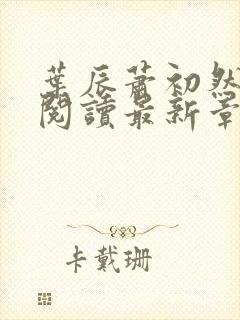 葉辰蕭初然
閱讀最新章
卡戴珊